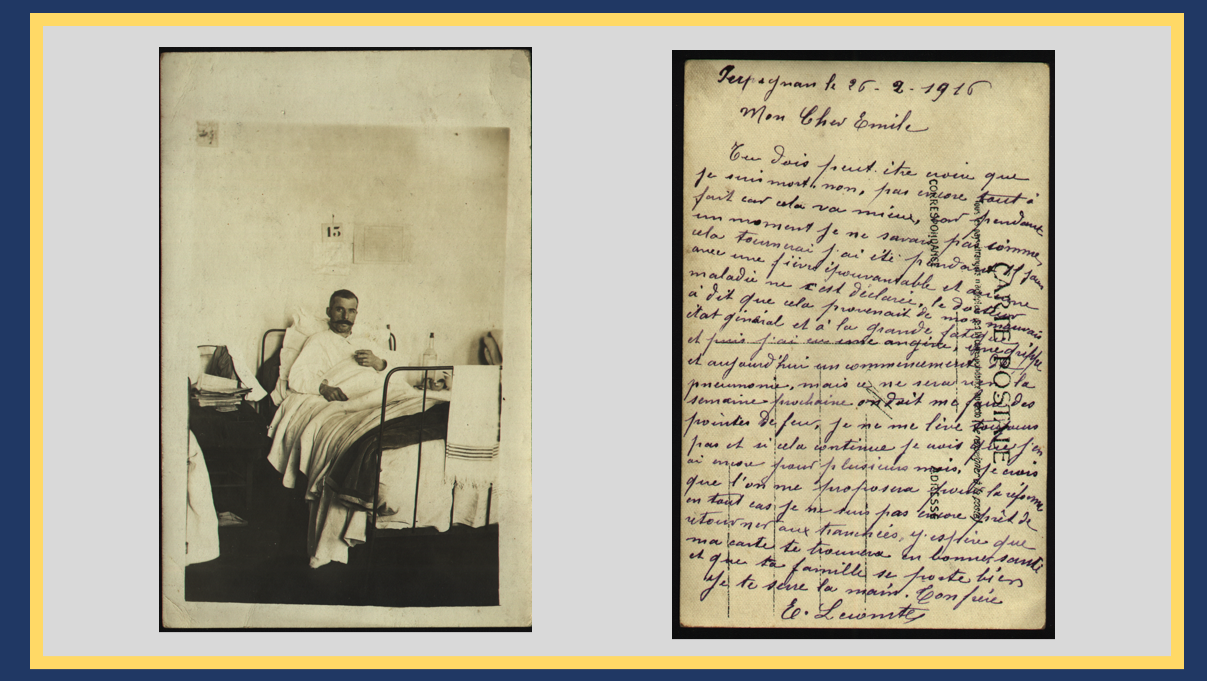 15
Perpignan le 26-2-1916
Mon Cher Emile
Tu dois peut être croire que
je suis mort, non, pas encore tout à
fait car cela va mieux, car pendant
un moment je ne savais pas comme
cela tournerai j'ai été pendant jours
avec une fièvre épouvantable et aucune
maladie ne s'est déclarée, le docteur
a dit que cela provenait de mon mauvais
état général et à la grande fatigue
et puis j'ai eu une angine, une grippe
et aujourd'hui un commencement de
pneumonie, mais ce ne sera rien la
semaine prochaine on doit me faire des
pointes de feu, je ne me lève toujours
pas et si cela continue je crois que j'en
ai encore pour plusieurs mois, je crois
que l'on me proposera pour la réforme
en tout cas je ne suis pas encore prêt de
retourner aux tranchées, j'espère que
ma carte te trouvera en bonne santé
et que ta famille se porte bien
Je te serre la main. Ton frère
E. Lecomte
CORRESPONDANCE
CARTE POSTALE
ADRESSE